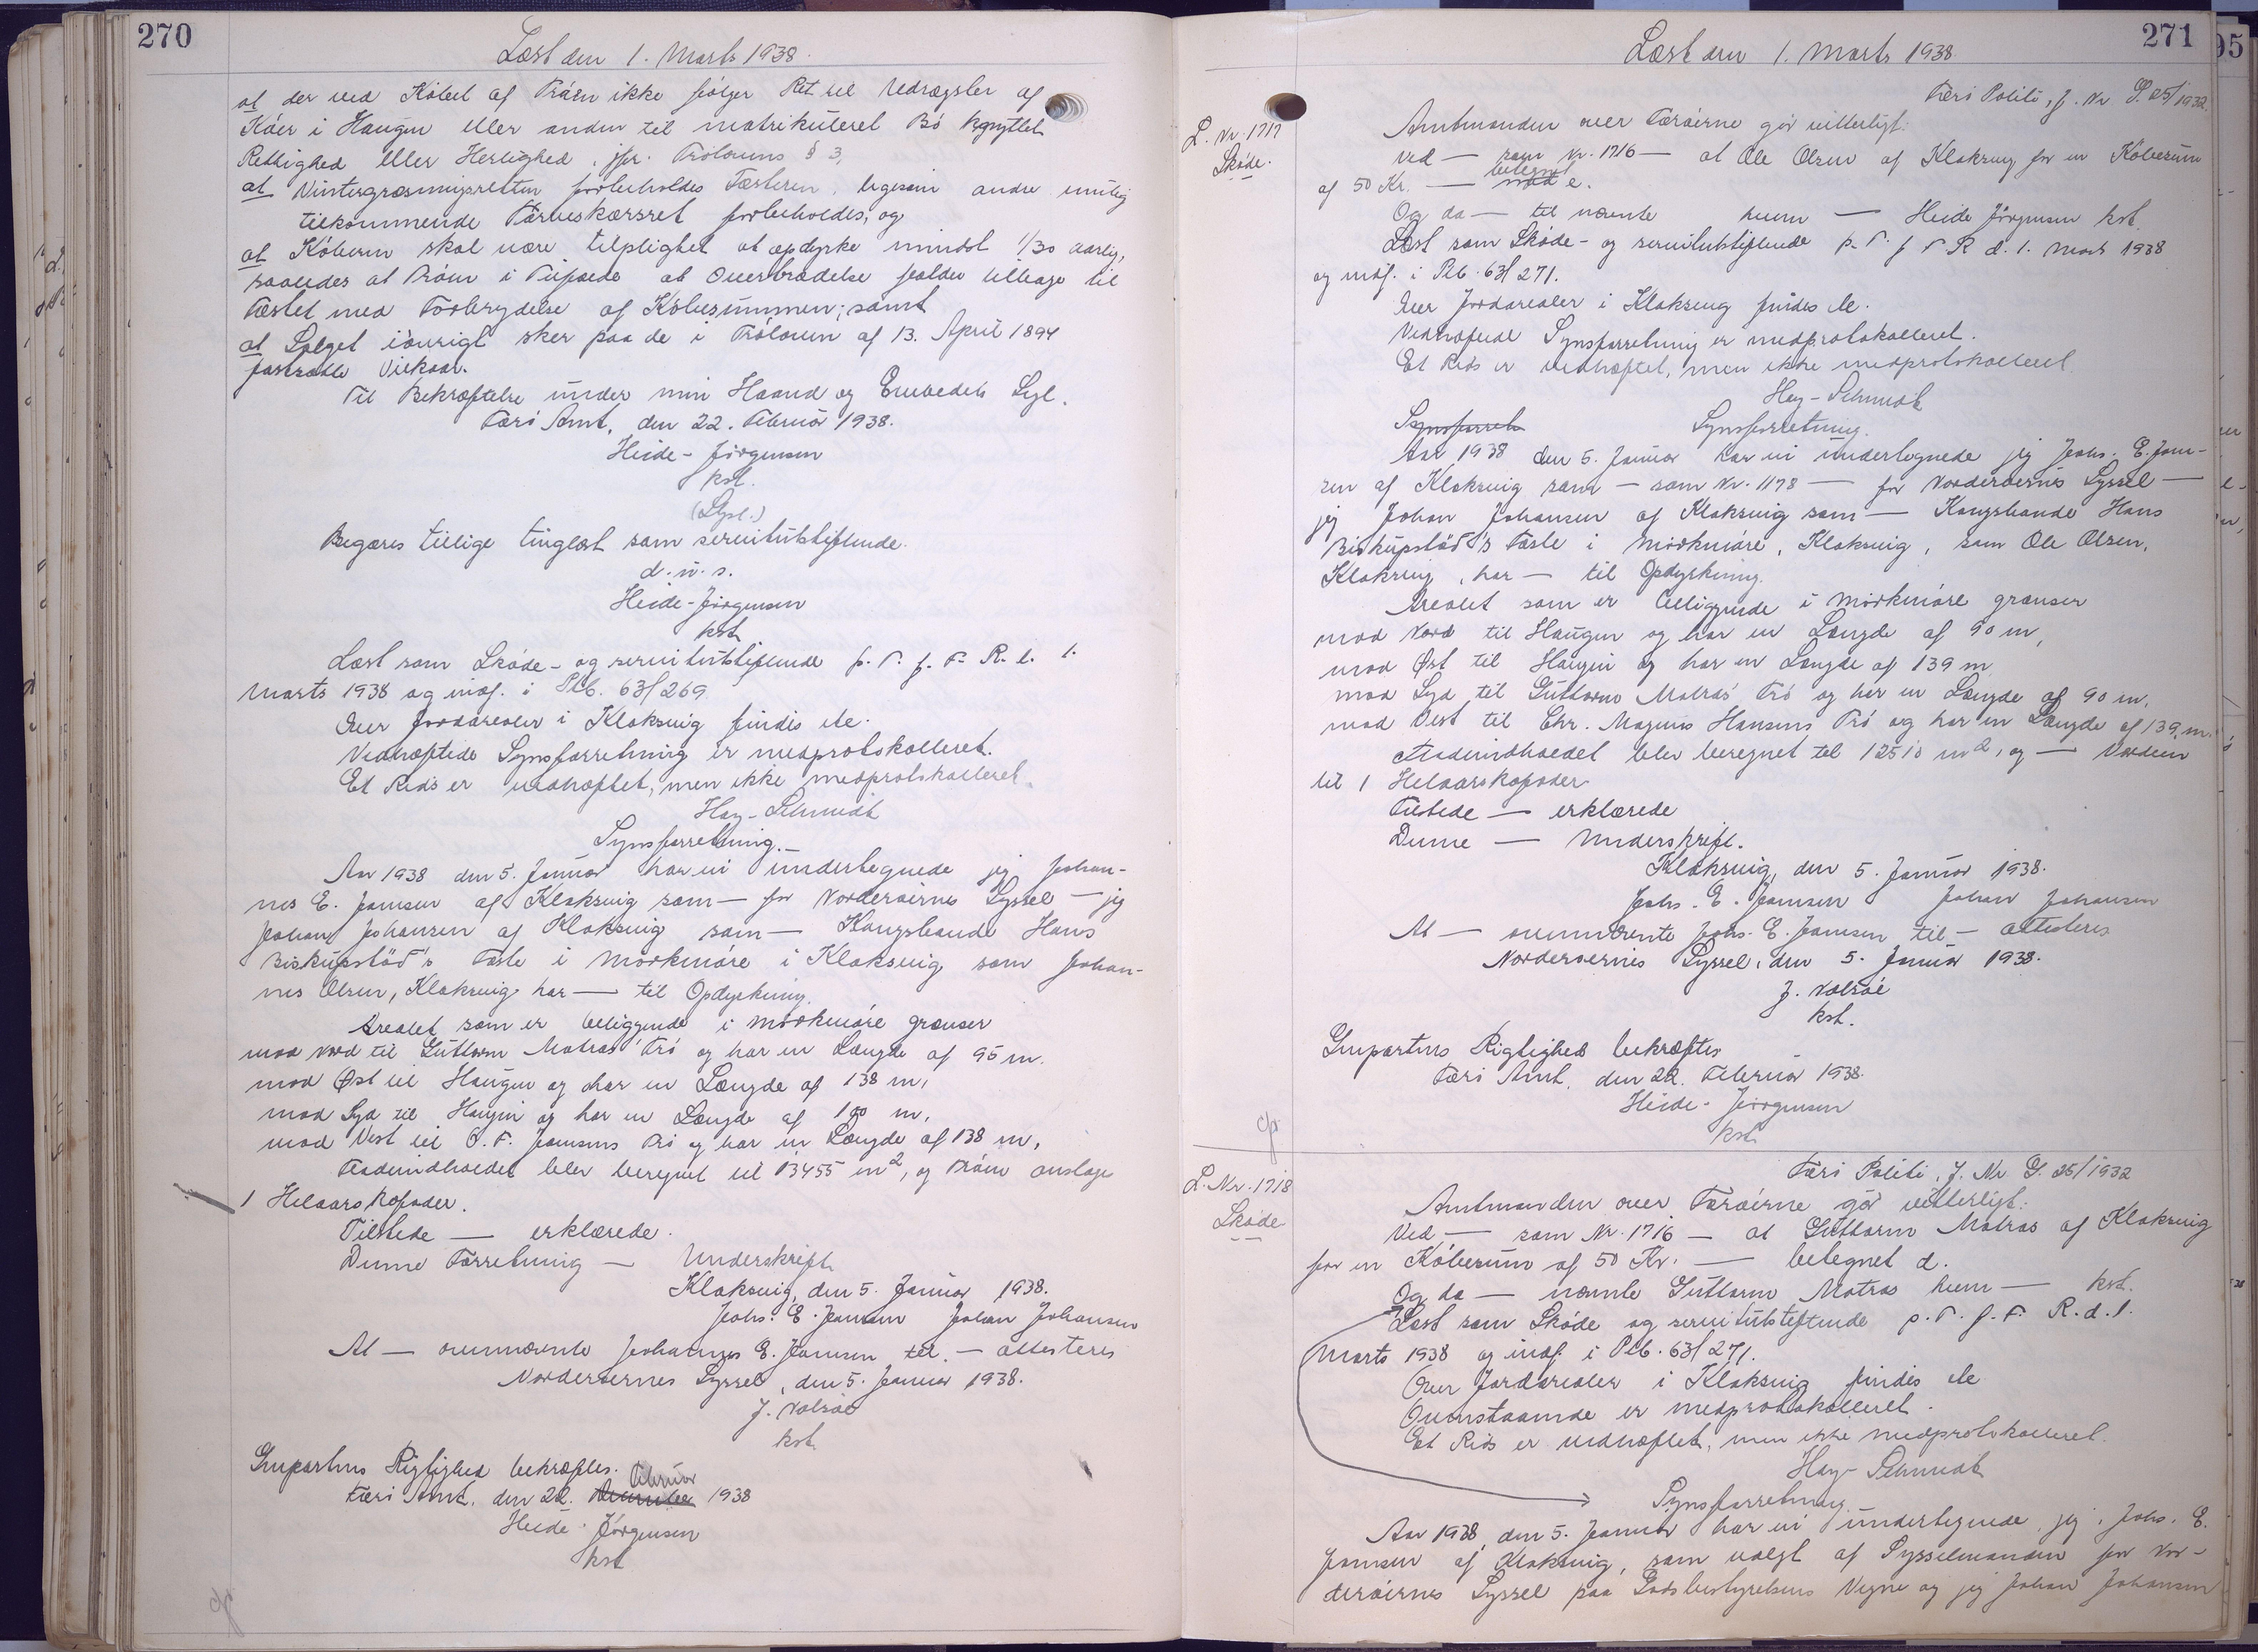 270
Læst den 1. Marts 1938.
at der ved Købet af Trøen ikke følger Ret til Uddragsler af
Køer i Haugen eller anden til matrikuleret Bø knyttet
Rettighed eller Herlighed, jfr. Trølovens § 3,
at Vintergræsningsretten forbeholdes Fæsteren, ligesom andre mulig
tilkommende Tørveskærsret forbeholdes, og
at Køberen skal være tilpligtet at opdyrke mindst 1/30 aarlig,
saaledes at Trøen i Tilfælde af Overtrædelse falder tilbage til
Fæstet med Fortrydelse af Købesummen; samt
at Salget iøvrigt sker paa de i Trøloven af 13. April 1894
fastsatte Vilkaar.
Til Bekræftelse under min Haand og Embedets Segl.
Færø Amt, den 22. Februar 1938.
Heide-Jørgensen
kst.
(Segl.)
Begæres tillige tinglæst som servitutstiftende.
d. u. s.
Heide-Jørgensen
kst.
Læst som Skøde- og servitutstiftende p. T. f. F. R. d. 1.
Marts 1938 og indf. i Ptb. 63/269.
Over Jordarealer i Klaksvig findes etc.
Vedhæftede Synsforretning er medprotokolleret.
Et Rids er vedhæftet, men ikke medprotokolleret.
Hay-Schmidt
Synsforretning.
Aar 1938 den 5. Januar har vi undertegnede jeg Johan-
nes E. Joensen af Klaksvig som — for Norderøernes Syssel — jeg
Johan Johansen af Klaksvig som — Kongsbonde Hans
Biskupstød's Fæste i Mörkmøre i Klaksvig som Johan-
nes Olsen, Klaksvig har — til Opdyrkning.
Arealet som er beliggende i Mörkmøre grænser
mod Nord til Guttorm Matras' Trø og har en Længde af 95 m.
mod Øst til Haugen og har en Længde af 138 m,
mod Syd til Haugen og har en Længde af 100 m,
mod Vest til J. F. Joensens Trø og har en Længde af 138 m,
Fladeindholdet blev beregnet til 13455 m2, og Trøen anslaas
1 Helaars Kofoder.
Tilstede — erklærede.
Denne Forretning — Underskrift
Klaksvig, den 5. Januar 1938.
Johs. E. Joensen Johan Johansen
At — ovennævnte Johannes E. Joensen til — attesteres
Norderøernes Syssel, den 5. Januar 1938.
J. Nolsøe
kst.
Genpartens Rigtighed bekræftes.
Februar
Færø Amt, den 22. 1938
Heide-Jørgensen
kst
271
Læst den 1. Marts 1938.
Færø Politi, J. Nr. G. 25/1932.
L. Nr. 1717
Skøde.
Amtmanden over Færøerne gør vitterligt:
Ved — som Nr. 1716 — at Ole Olsen af Klaksvig for en Købesum
betegnet
af 50 Kr. — med e.
Og da — til nævnte hvem — Heide Jörgensen kst.
Læst som Skøde- og servitutstiftende p. T. f. F R d. 1. Marts 1938
og indf. i Ptb. 63/271.
Over Jordarealer i Klaksvig findes etc.
Vedhæftede Synsforretning er medprotokolleret.
Et Rids er vedhæftet, men ikke medprotokolleret.
Hay-Schmidt
Synsforretn Synsforretning.
Aar 1938 den 5. Januar har vi undertegnede jeg Johs. E. Joen-
sen af Klaksvig som — som Nr. 1178 — for Norderøernes Syssel —
jeg Johan Johansen af Klaksvig som — Kongsbonde Hans
Biskupstöd's Fæste i Mörkmøre, Klaksvig, som Ole Olsen,
Klaksvig, har — til Opdyrkning.
Arealet som er beliggende i Mörkmøre grænser
mod Nord til Haugen og har en Længde af 90 m,
mod Øst til Haugen og har en Længde af 139 m
mod Syd til Guttorm Matras' Trø og har en Længde af 90 m.
mod Vest til Chr. Magnus Hansens Trø og har en Længde af 139 m.
Fladeindholdet blev beregnet til 12510 m2, og — Værdien
til 1 Helaarskofoder
Tilstede — erklærede
Denne — Underskrift.
Klaksvig, den 5. Januar 1938.
Johs. E. Joensen Johan Johansen
At — ovennævnte Johs. E. Joensen til — attesteres
Norderøernes Syssel, den 5. Januar 1938.
J. Nolsøe
kst.
Genpartens Rigtighed bekræftes
Færø Amt, den 22. Februar 1938.
Heide-Jörgensen
kst.
Færø Politi, J. Nr G. 25/1932
L. Nr. 1718
Skøde
Amtmanden over Færøerne gør vitterligt:
Ved — som Nr. 1716 — at Guttorm Matras af Klaksvig
for en Købesum af 50 Kr. — betegnet d.
Og da — nævnte Guttorm Matras hvem — kst.
Læst som Skøde og servitutstiftende p. T. f. F. R. d. 1.
Marts 1938 og indf. i Ptb. 63/271.
Over Jordarealer i Klaksvig findes etc
Ovenstaaende er medprotokolleret.
Et Rids er vedhæftet, men ikke medprotokolleret.
Hay-Schmidt
Synsforretning
Aar 1938, den 5. Januar har vi undertegnede, jeg, Johs. E.
Joensen af Klaksvig, som valgt af Sysselmanden for Nor-
derøernes Syssel paa Godsbestyrelsens Vegne og jeg Johan Johansen